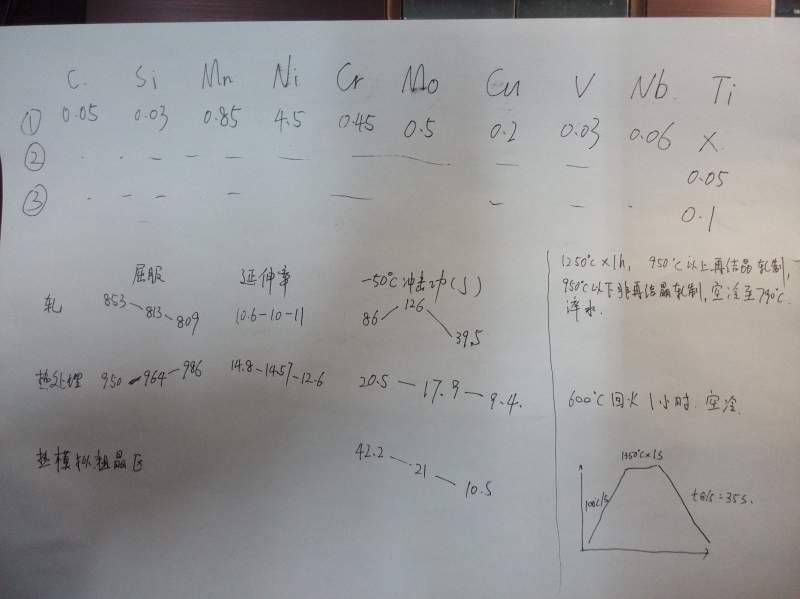 C. Si Mn Ni Cr Mo Cu V Nb. Ti
① 0.05 0.03 0.85 4.5 0.45 0.5 0.2 0.03 0.06 X
② 0.05
③ 0.1
屈服 延伸率 -50℃冲击功(J)
轧 853-813-809 10.6-10-11 86 126 39.5
热处理 950-964-986 14.8-14.57-12.6 20.5-17.9-9.4.
热模拟粗晶区 42.2-21-10.5
1250℃×1h, 950℃以上再结晶轧制,
950℃以下非再结晶轧制,空冷至790℃.
淬水.
600℃回火1小时.空冷.
1350℃×1S
100℃/S
t8/5=35S.